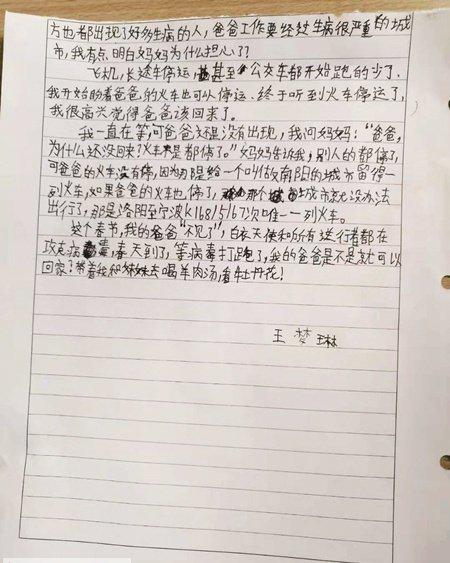 方也都出现了好多生病的人，爸爸工作要经过生病很严重的城
市，我有点明白妈妈为什么担心了？
飞机，长途车停运，甚至公交车都开始跑的少了、
我开始盼着爸爸的火车也可以停运、终于听到火车停运了，
我很高兴觉得爸爸该回来了。
我一直在等可爸爸还是没有出现，我问妈妈：“爸爸，
为什么还没回来？火车不是都停了。”妈妈告诉我，别人的都停了，
可爸爸的火车没有停，因为为了给一个叫做南阳的城市留得一
列火车，如果爸爸的火车也停了，那个城市就没办法
出行了，那是洛阳至宁波K1168/5/67次唯一一列火车。
这个春节，我的爸爸“不见了”，白衣天使和所有逆行者都在
攻克病毒，春天到了，等病毒打跑了，我的爸爸是不是就可以
回家？带着我和妹妹去喝羊肉汤，看牡丹花！
王梦琳